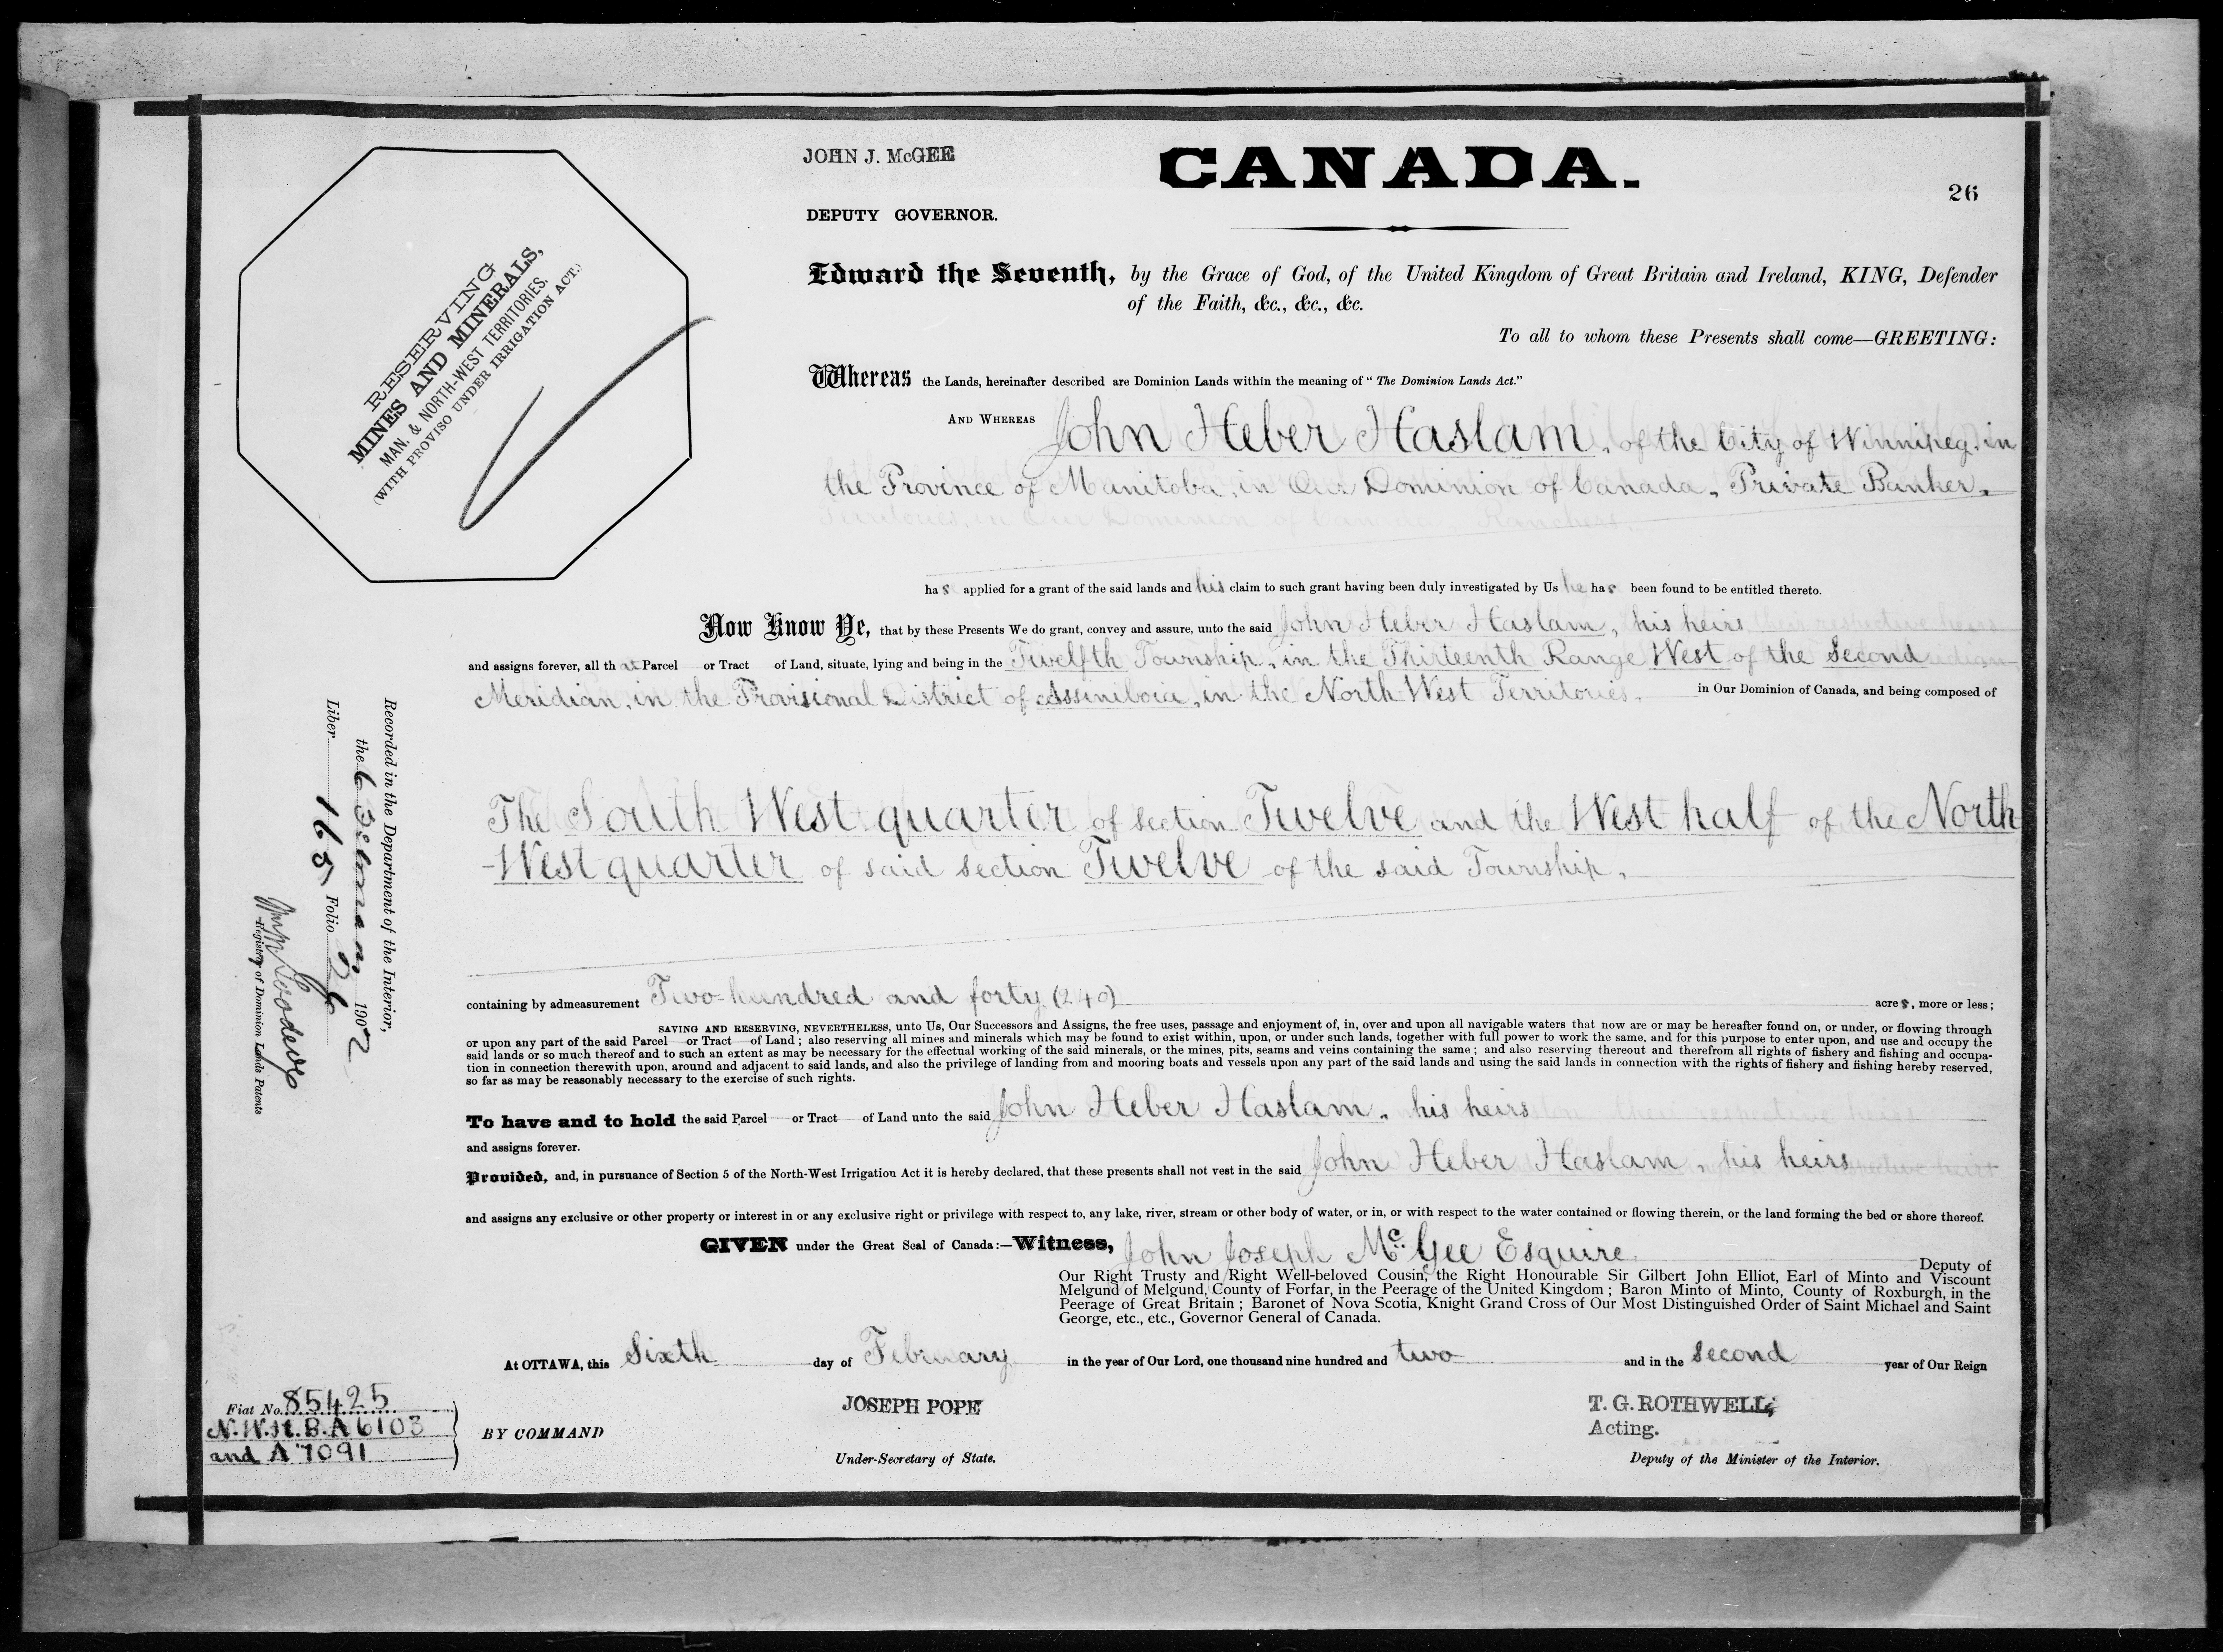 JOHN J. McGEE
CANADA.
26
DEPUTY GOVERNOR.
RESERVING
MINES AND MINERALS,
MAN. & NORTH-WEST TERRITORIES.
(WITH PROVISO UNDER IRRIGATION ACT.)
Edward the Seventh, by the Grace of God, of the United Kingdom of Great Britain and Ireland, KING, Defender
of the Faith, &c., &c., &c.
To all to whom these Presents shall come—GREETING:
Whereas the Lands, hereinafter described are Dominion Lands within the meaning of "The Dominion Lands Act."
AND WHEREAS John Heber Haslam, of the City of Winnipeg, in
the Province of Manitoba, in Our Dominion of Canada, Private Banker,
Territories, in Our Dominion of Canada, Ranchers.
has applied for a grant of the said lands and his claim to such grant having been duly investigated by Us he has been found to be entitled thereto.
Now Know Ye, that by these Presents We do grant, convey and assure, unto the said John Heber Haslam, his heirs their respective heirs
and assigns forever, all that Parcel or Tract of Land, situate, lying and being in the Twelfth Township, in the Thirteenth Range West of the Second
Meridian, in the Provisional District of Assiniboia, in the North West Territories, in Our Dominion of Canada, and being composed of
The South West quarter of section Twelve and the West half of the North
-West quarter of said section Twelve of the said Township,
containing by admeasurement Two hundred and forty (240) acres, more or less;
SAVING AND RESERVING, NEVERTHELESS, unto Us, Our Successors and Assigns, the free uses, passage and enjoyment of, in, over and upon all navigable waters that now are or may be hereafter found on, or under, or flowing through
or upon any part of the said Parcel or Tract of Land; also reserving all mines and minerals which may be found to exist within, upon, or under such lands, together with full power to work the same, and for this purpose to enter upon, and use and occupy the
said lands or so much thereof and to such an extent as may be necessary for the effectual working of the said minerals, or the mines, pits, seams and veins containing the same; and also reserving thereout and therefrom all rights of fishery and fishing and occupa-
tion in connection therewith upon, around and adjacent to said lands, and also the privilege of landing from and mooring boats and vessels upon any part of the said lands and using the said lands in connection with the rights of fishery and fishing hereby reserved,
so far as may be reasonably necessary to the exercise of such rights.
To have and to hold the said Parcel or Tract of Land unto the said John Heber Haslam, his heirs
and assigns forever.
Provided, and, in pursuance of Section 5 of the North-West Irrigation Act it is hereby declared, that these presents shall not vest in the said John Heber Haslam, his heirs
and assigns any exclusive or other property or interest in or any exclusive right or privilege with respect to, any lake, river, stream or other body of water, or in, or with respect to the water contained or flowing therein, or the land forming the bed or shore thereof.
GIVEN under the Great Seal of Canada:—Witness, John Joseph McGee Esquire
Deputy of
Our Right Trusty and Right Well-beloved Cousin, the Right Honourable Sir Gilbert John Elliot, Earl of Minto and Viscount
Melgund of Melgund, County of Forfar, in the Peerage of the United Kingdom; Baron Minto of Minto, County of Roxburgh, in the
Peerage of Great Britain; Baronet of Nova Scotia, Knight Grand Cross of Our Most Distinguished Order of Saint Michael and Saint
George, etc., etc., Governor General of Canada.
At OTTAWA, this Sixth day of February in the year of Our Lord, one thousand nine hundred and two and in the second year of Our Reign
JOSEPH POPE
T. G. ROTHWELL,
Acting.
BY COMMAND
Under-Secretary of State.
Deputy of the Minister of the Interior.
Fiat No. 85425
N.W.H.B.A 6103
and A 7091
Recorded in the Department of the Interior,
the 6 February 1902
Liber 165 Folio 26
Registrar of Dominion Lands Patents